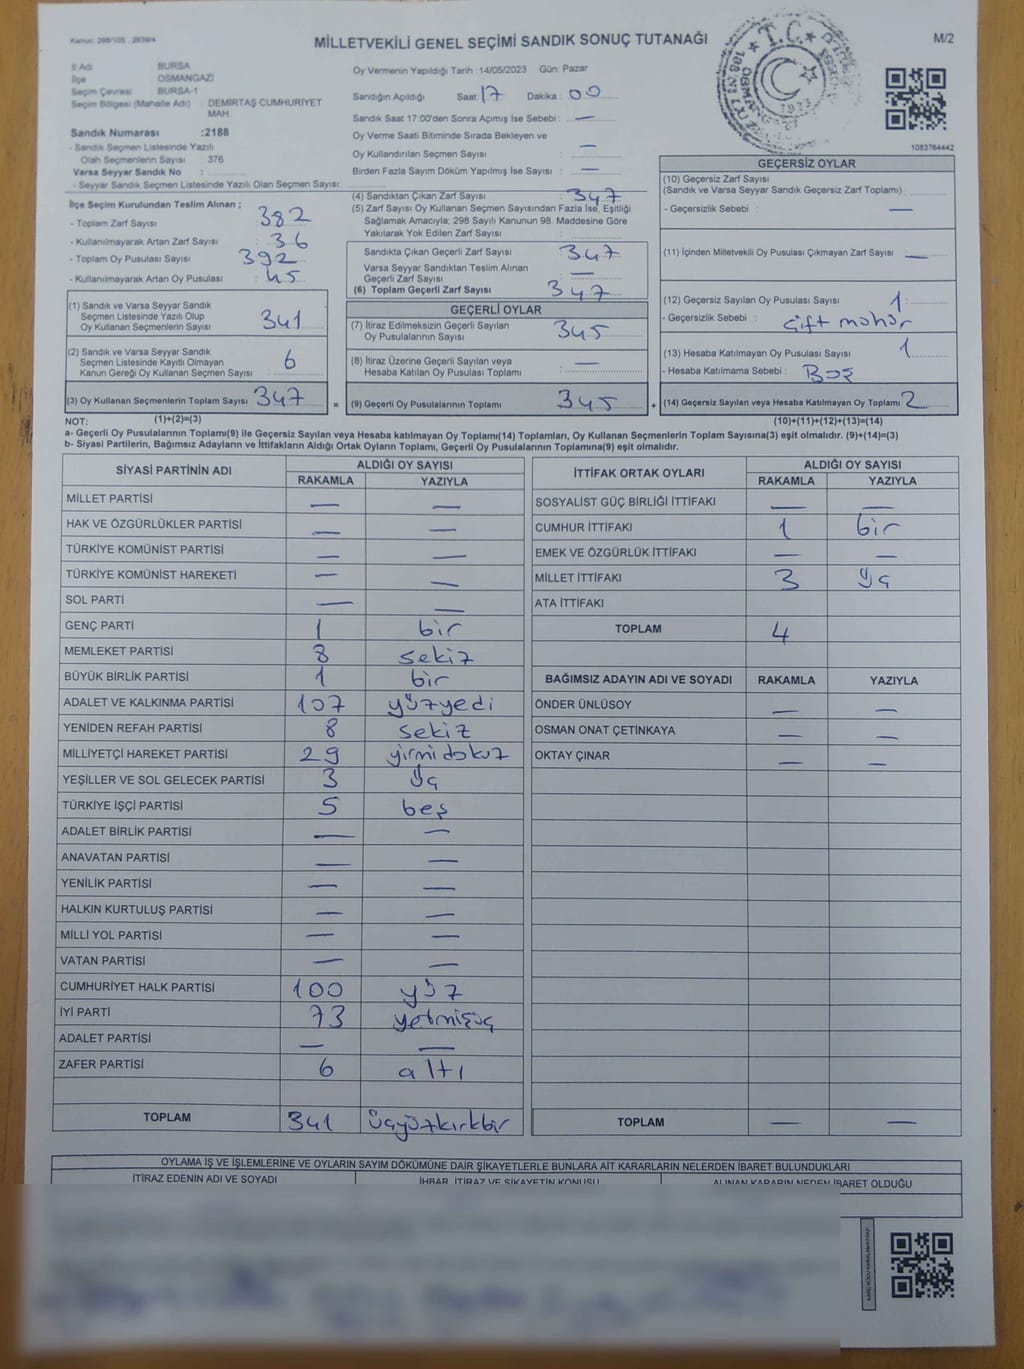 Kanun: 298/105 , 2839/4
MİLLETVEKİLİ GENEL SEÇİMİ SANDIK SONUÇ TUTANAĞI
M/2
İl Adı BURSA
İlçe OSMANGAZİ
Seçim Çevresi BURSA-1
Seçim Bölgesi (Mahalle Adı) DEMİRTAŞ CUMHURİYET MAH
Sandık Numarası :2188
- Sandık Seçmen Listesinde Yazılı
Olan Seçmenlerin Sayısı 376
Varsa Seyyar Sandık No :
- Seyyar Sandık Seçmen Listesinde Yazılı Olan Seçmen Sayısı:
Oy Vermenin Yapıldığı Tarih :14/05/2023 Gün: Pazar
Sandığın Açıldığı Saat: 17 Dakika: 00
Sandık Saat 17:00'den Sonra Açımış İse Sebebi : —
Oy Verme Saati Bitiminde Sırada Bekleyen ve
Oy Kullandırılan Seçmen Sayısı : —
Birden Fazla Sayım Döküm Yapılmış İse Sayısı : —
T.C.
1923
1083764442
İlçe Seçim Kurulundan Teslim Alınan ;
- Toplam Zarf Sayısı : 382
- Kullanılmayarak Artan Zarf Sayısı : 36
- Toplam Oy Pusulası Sayısı : 392
- Kullanılmayarak Artan Oy Pusulası : 45
(1) Sandık ve Varsa Seyyar Sandık
Seçmen Listesinde Yazılı Olup
Oy Kullanan Seçmenlerin Sayısı : 341
(2) Sandık ve Varsa Seyyar Sandık
Seçmen Listesinde Kayıtlı Olmayan
Kanun Gereği Oy Kullanan Seçmen Sayısı : 6
(3) Oy Kullanan Seçmenlerin Toplam Sayısı : 347
(4) Sandıktan Çıkan Zarf Sayısı : 347
(5) Zarf Sayısı Oy Kullanan Seçmen Sayısından Fazla İse, Eşitliği
Sağlamak Amacıyla; 298 Sayılı Kanunun 98. Maddesine Göre
Yakılarak Yok Edilen Zarf Sayısı :
Sandıkta Çıkan Geçerli Zarf Sayısı : 347
Varsa Seyyar Sandıktan Teslim Alınan
Geçerli Zarf Sayısı : —
(6) Toplam Geçerli Zarf Sayısı : 347
GEÇERLİ OYLAR
(7) İtiraz Edilmeksizin Geçerli Sayılan
Oy Pusulalarının Sayısı : 345
(8) İtiraz Üzerine Geçerli Sayılan veya
Hesaba Katılan Oy Pusulası Toplamı : —
= (9) Geçerli Oy Pusulalarının Toplamı : 345 +
GEÇERSİZ OYLAR
(10) Geçersiz Zarf Sayısı
(Sandık ve Varsa Seyyar Sandık Geçersiz Zarf Toplamı) :
- Geçersizlik Sebebi : —
(11) İçinden Milletvekili Oy Pusulası Çıkmayan Zarf Sayısı : —
(12) Geçersiz Sayılan Oy Pusulası Sayısı : 1
- Geçersizlik Sebebi : Çift mühür
(13) Hesaba Katılmayan Oy Pusulası Sayısı : 1
- Hesaba Katılmama Sebebi : Boş
(14) Geçersiz Sayılan veya Hesaba Katılmayan Oy Toplamı : 2
NOT: (1)+(2)=(3) (10)+(11)+(12)+(13)=(14)
a- Geçerli Oy Pusulalarının Toplamı(9) ile Geçersiz Sayılan veya Hesaba katılmayan Oy Toplamı(14) Toplamları, Oy Kullanan Seçmenlerin Toplam Sayısına(3) eşit olmalıdır. (9)+(14)=(3)
b- Siyasi Partilerin, Bağımsız Adayların ve İttifakların Aldığı Ortak Oyların Toplamı, Geçerli Oy Pusulalarının Toplamına(9) eşit olmalıdır.
SİYASİ PARTİNİN ADI ALDIĞI OY SAYISI
RAKAMLA YAZIYLA
MİLLET PARTİSİ — —
HAK VE ÖZGÜRLÜKLER PARTİSİ — —
TÜRKİYE KOMÜNİST PARTİSİ — —
TÜRKİYE KOMÜNİST HAREKETİ — —
SOL PARTİ — —
GENÇ PARTİ 1 bir
MEMLEKET PARTİSİ 8 sekiz
BÜYÜK BİRLİK PARTİSİ 1 bir
ADALET VE KALKINMA PARTİSİ 107 yüzyedi
YENİDEN REFAH PARTİSİ 8 sekiz
MİLLİYETÇİ HAREKET PARTİSİ 29 yirmidokuz
YEŞİLLER VE SOL GELECEK PARTİSİ 3 üç
TÜRKİYE İŞÇİ PARTİSİ 5 beş
ADALET BİRLİK PARTİSİ — —
ANAVATAN PARTİSİ — —
YENİLİK PARTİSİ — —
HALKIN KURTULUŞ PARTİSİ — —
MİLLİ YOL PARTİSİ — —
VATAN PARTİSİ — —
CUMHURİYET HALK PARTİSİ 100 yüz
İYİ PARTİ 73 yetmişüç
ADALET PARTİSİ — —
ZAFER PARTİSİ 6 altı
TOPLAM 341 üçyüzkırkbir
İTTİFAK ORTAK OYLARI ALDIĞI OY SAYISI
RAKAMLA YAZIYLA
SOSYALİST GÜÇ BİRLİĞİ İTTİFAKI — —
CUMHUR İTTİFAKI 1 bir
EMEK VE ÖZGÜRLÜK İTTİFAKI — —
MİLLET İTTİFAKI 3 üç
ATA İTTİFAKI
TOPLAM 4
BAĞIMSIZ ADAYIN ADI VE SOYADI RAKAMLA YAZIYLA
ÖNDER ÜNLÜSOY — —
OSMAN ONAT ÇETİNKAYA — —
OKTAY ÇINAR — —
TOPLAM — —
OYLAMA İŞ VE İŞLEMLERİNE VE OYLARIN SAYIM DÖKÜMÜNE DAİR ŞİKAYETLERLE BUNLARA AİT KARARLARIN NELERDEN İBARET BULUNDUKLARI
İTİRAZ EDENİN ADI VE SOYADI İHBAR, İTİRAZ VE ŞİKAYETİN KONUSU ALINAN KARARIN NEDEN İBARET OLDUĞU